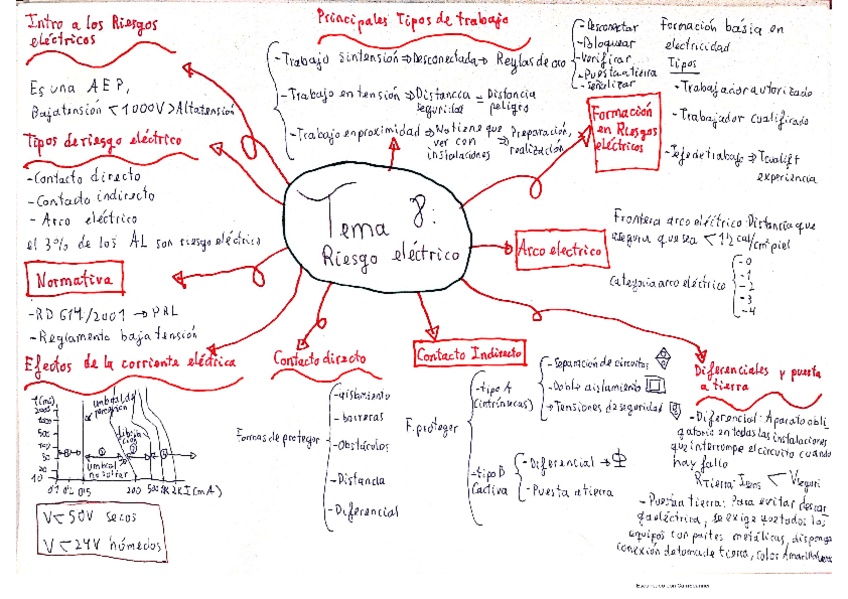 Intro a los Riesgos
eléctricos
Es una AEP,
Baja tensión < 1000V > Alta tensión
Tipos de riesgo eléctrico
- Contacto directo
- Contacto indirecto
- Arco eléctrico
el 3% de los AL son riesgo eléctrico
Normativa
- RD 614/2001 → PRL
- Reglamento baja tensión
Efectos de la corriente eléctrica
t(ms)
umbral de
percepción
umbral
no soltar
0'1 0'2 0'5 200 500 2K I(mA)
V < 50V secos
V < 24V húmedos
Principales Tipos de trabajo
- Trabajo sin tensión → Desconectada → Reglas de oro
- Desconectar
- Bloquear
- Verificar
- Puesta a tierra
- Señalizar
- Trabajo en tensión → Distancia = Distancia
seguridad peligro
- Trabajo en proximidad → No tiene que → Preparación,
ver con realización
instalaciones
Tema 8:
Riesgo eléctrico
Formación
en Riesgos
eléctricos
Formación básica en
electricidad
Tipos
- Trabajador autorizado
- Trabajador cualificado
- Jefe de trabajo →
experiencia
Arco electrico
Frontera arco eléctrico: Distancia que
asegura que sea < 1'2 cal/cm² piel
Categoria arco eléctrico
- 0
- 1
- 2
- 3
- 4
Contacto directo
Formas de proteger
- aislamiento
- barreras
- Obstáculos
- Distancia
- Diferencial
Contacto Indirecto
F. proteger
- tipo A
(intrínsecas)
- Separación de circuitos
- Doble aislamiento
→ Tensiones de seguridad
- tipo B
(activa
- Diferencial →
- Puesta a tierra
Diferenciales y puesta
a tierra
- Diferencial: Aparato obli
gatorio en todas las instalaciones
que interrumpe el circuito cuando
hay fallo
- Puesta a tierra: Para evitar descar
ga eléctrica, se exige que todos los
equipos con partes metálicas, disponga
conexión de toma de tierra, color
Escaneado con CamScanner